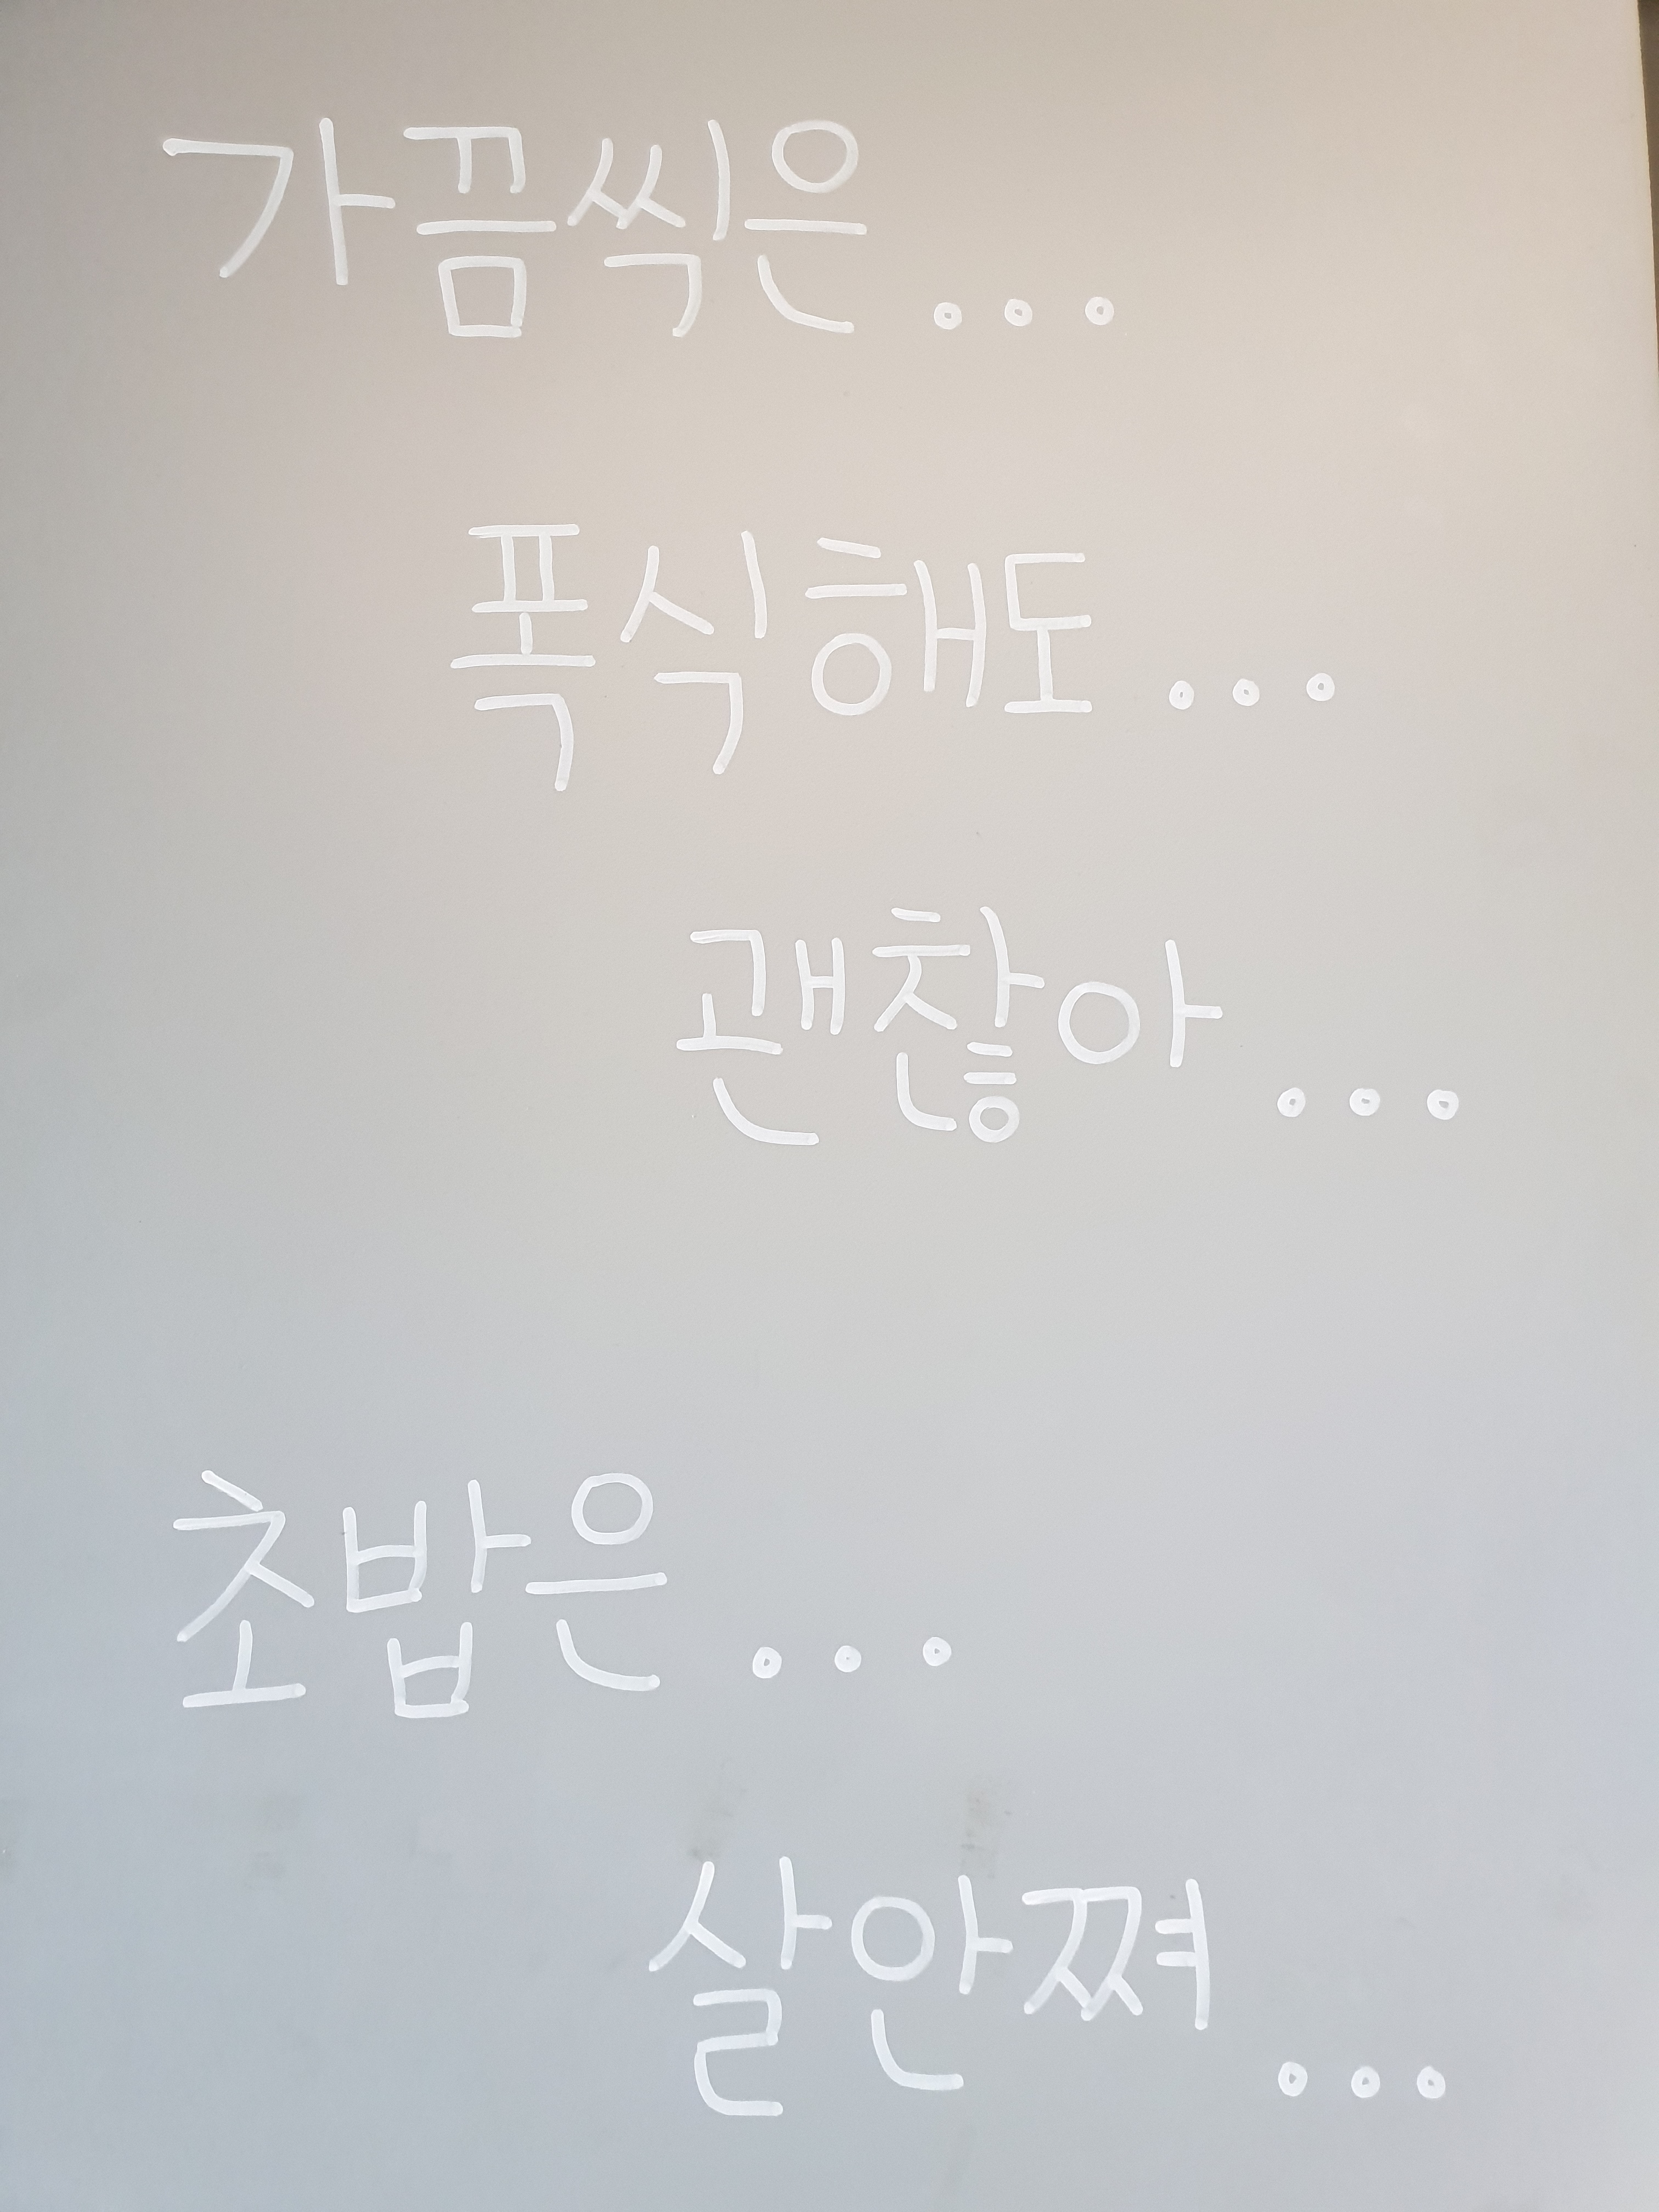 가끔씩은...
폭식해도...
괜찮아...
초밥은...
살안쪄...